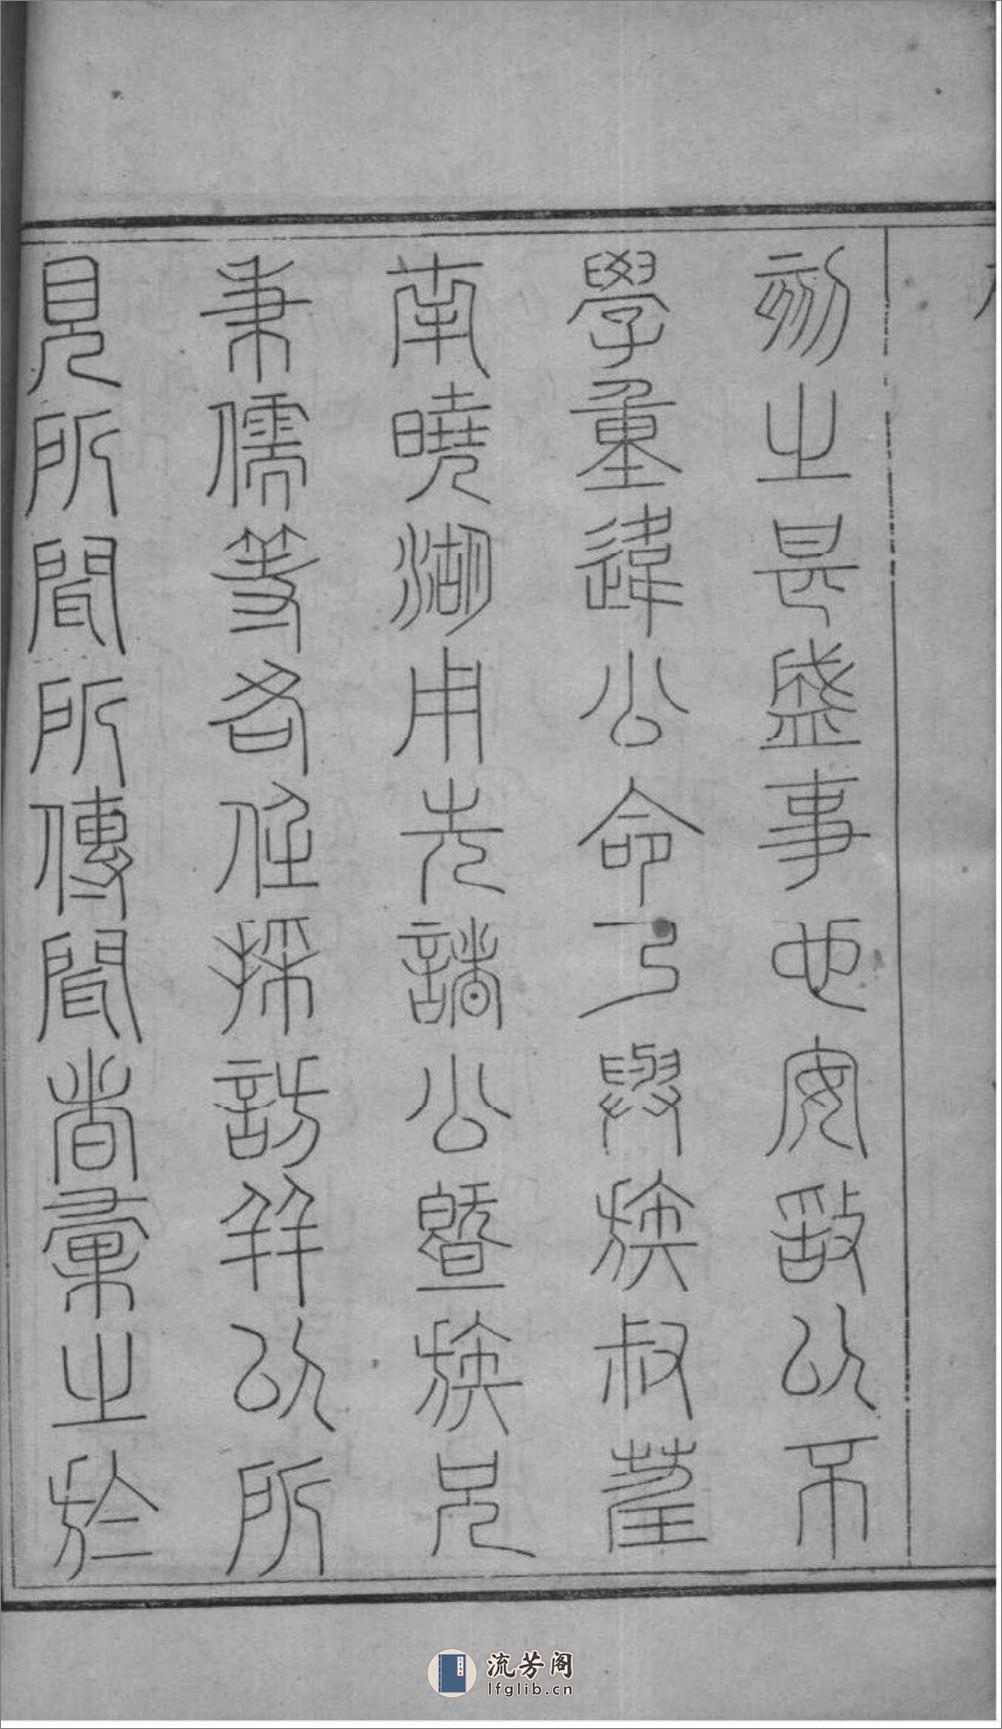 刻之甚盛事也安敢以不
學重違公命乃與族叔荃
南曉湖用光諸公暨族兄
秉儒等各任採訪並以所
見所聞所傳聞者彙之於
流芳阁
lfglib.cn